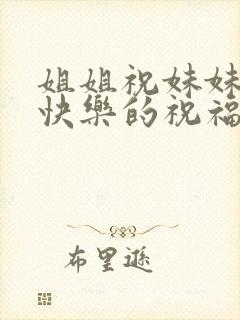 姐姐祝妹妹
快樂的祝福
布里遜